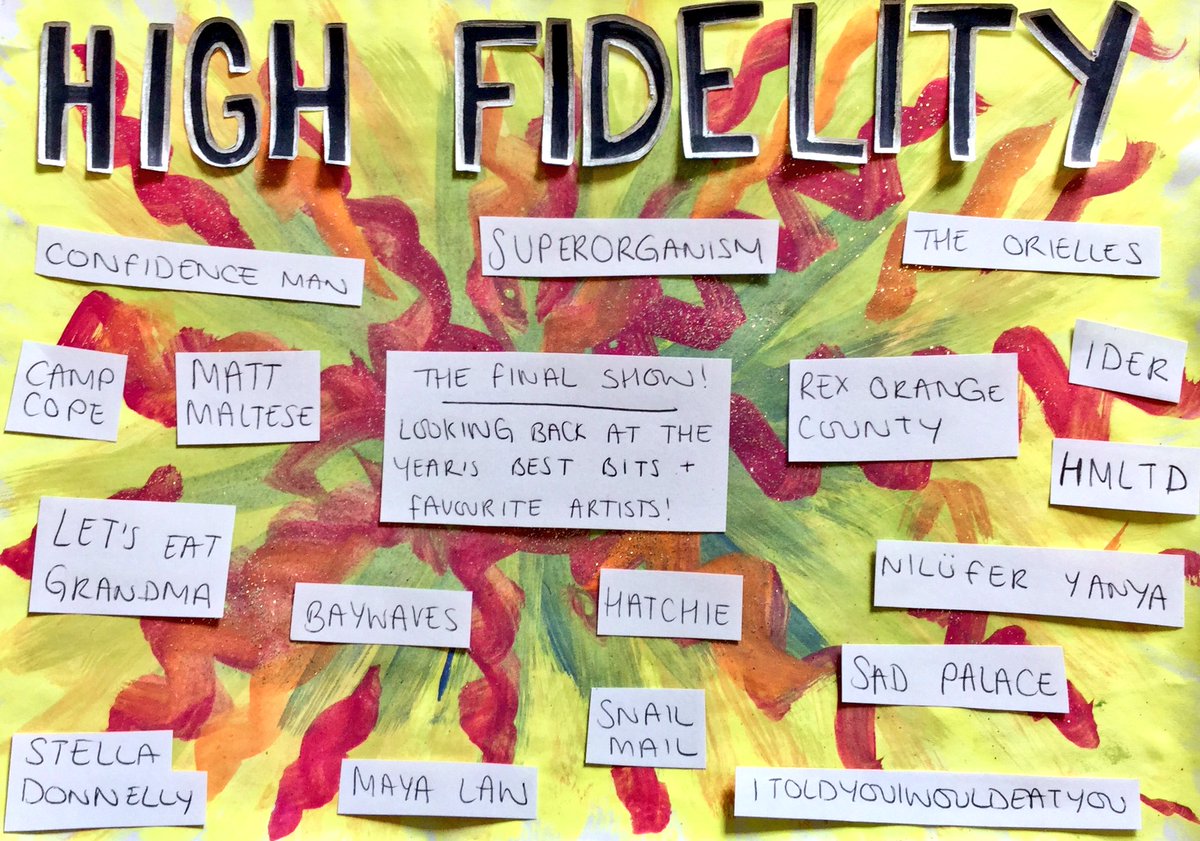 HIGH FIDELITY
CONFIDENCE MAN
SUPERORGANISM
THE ORIELLES
CAMP
COPE
MATT
MALTESE
THE FINAL SHOW!
LOOKING BACK AT THE
YEAR'S BEST BITS +
FAVOURITE ARTISTS!
REX ORANGE
COUNTY
IDER
HMLTD
LET'S EAT
GRANDMA
BAYWAVES
HATCHIE
NILÜFER YANYA
SAD PALACE
STELLA
DONNELLY
MAYA LAW
SNAIL
MAIL
ITOLDYOUIWOULDEATYOU